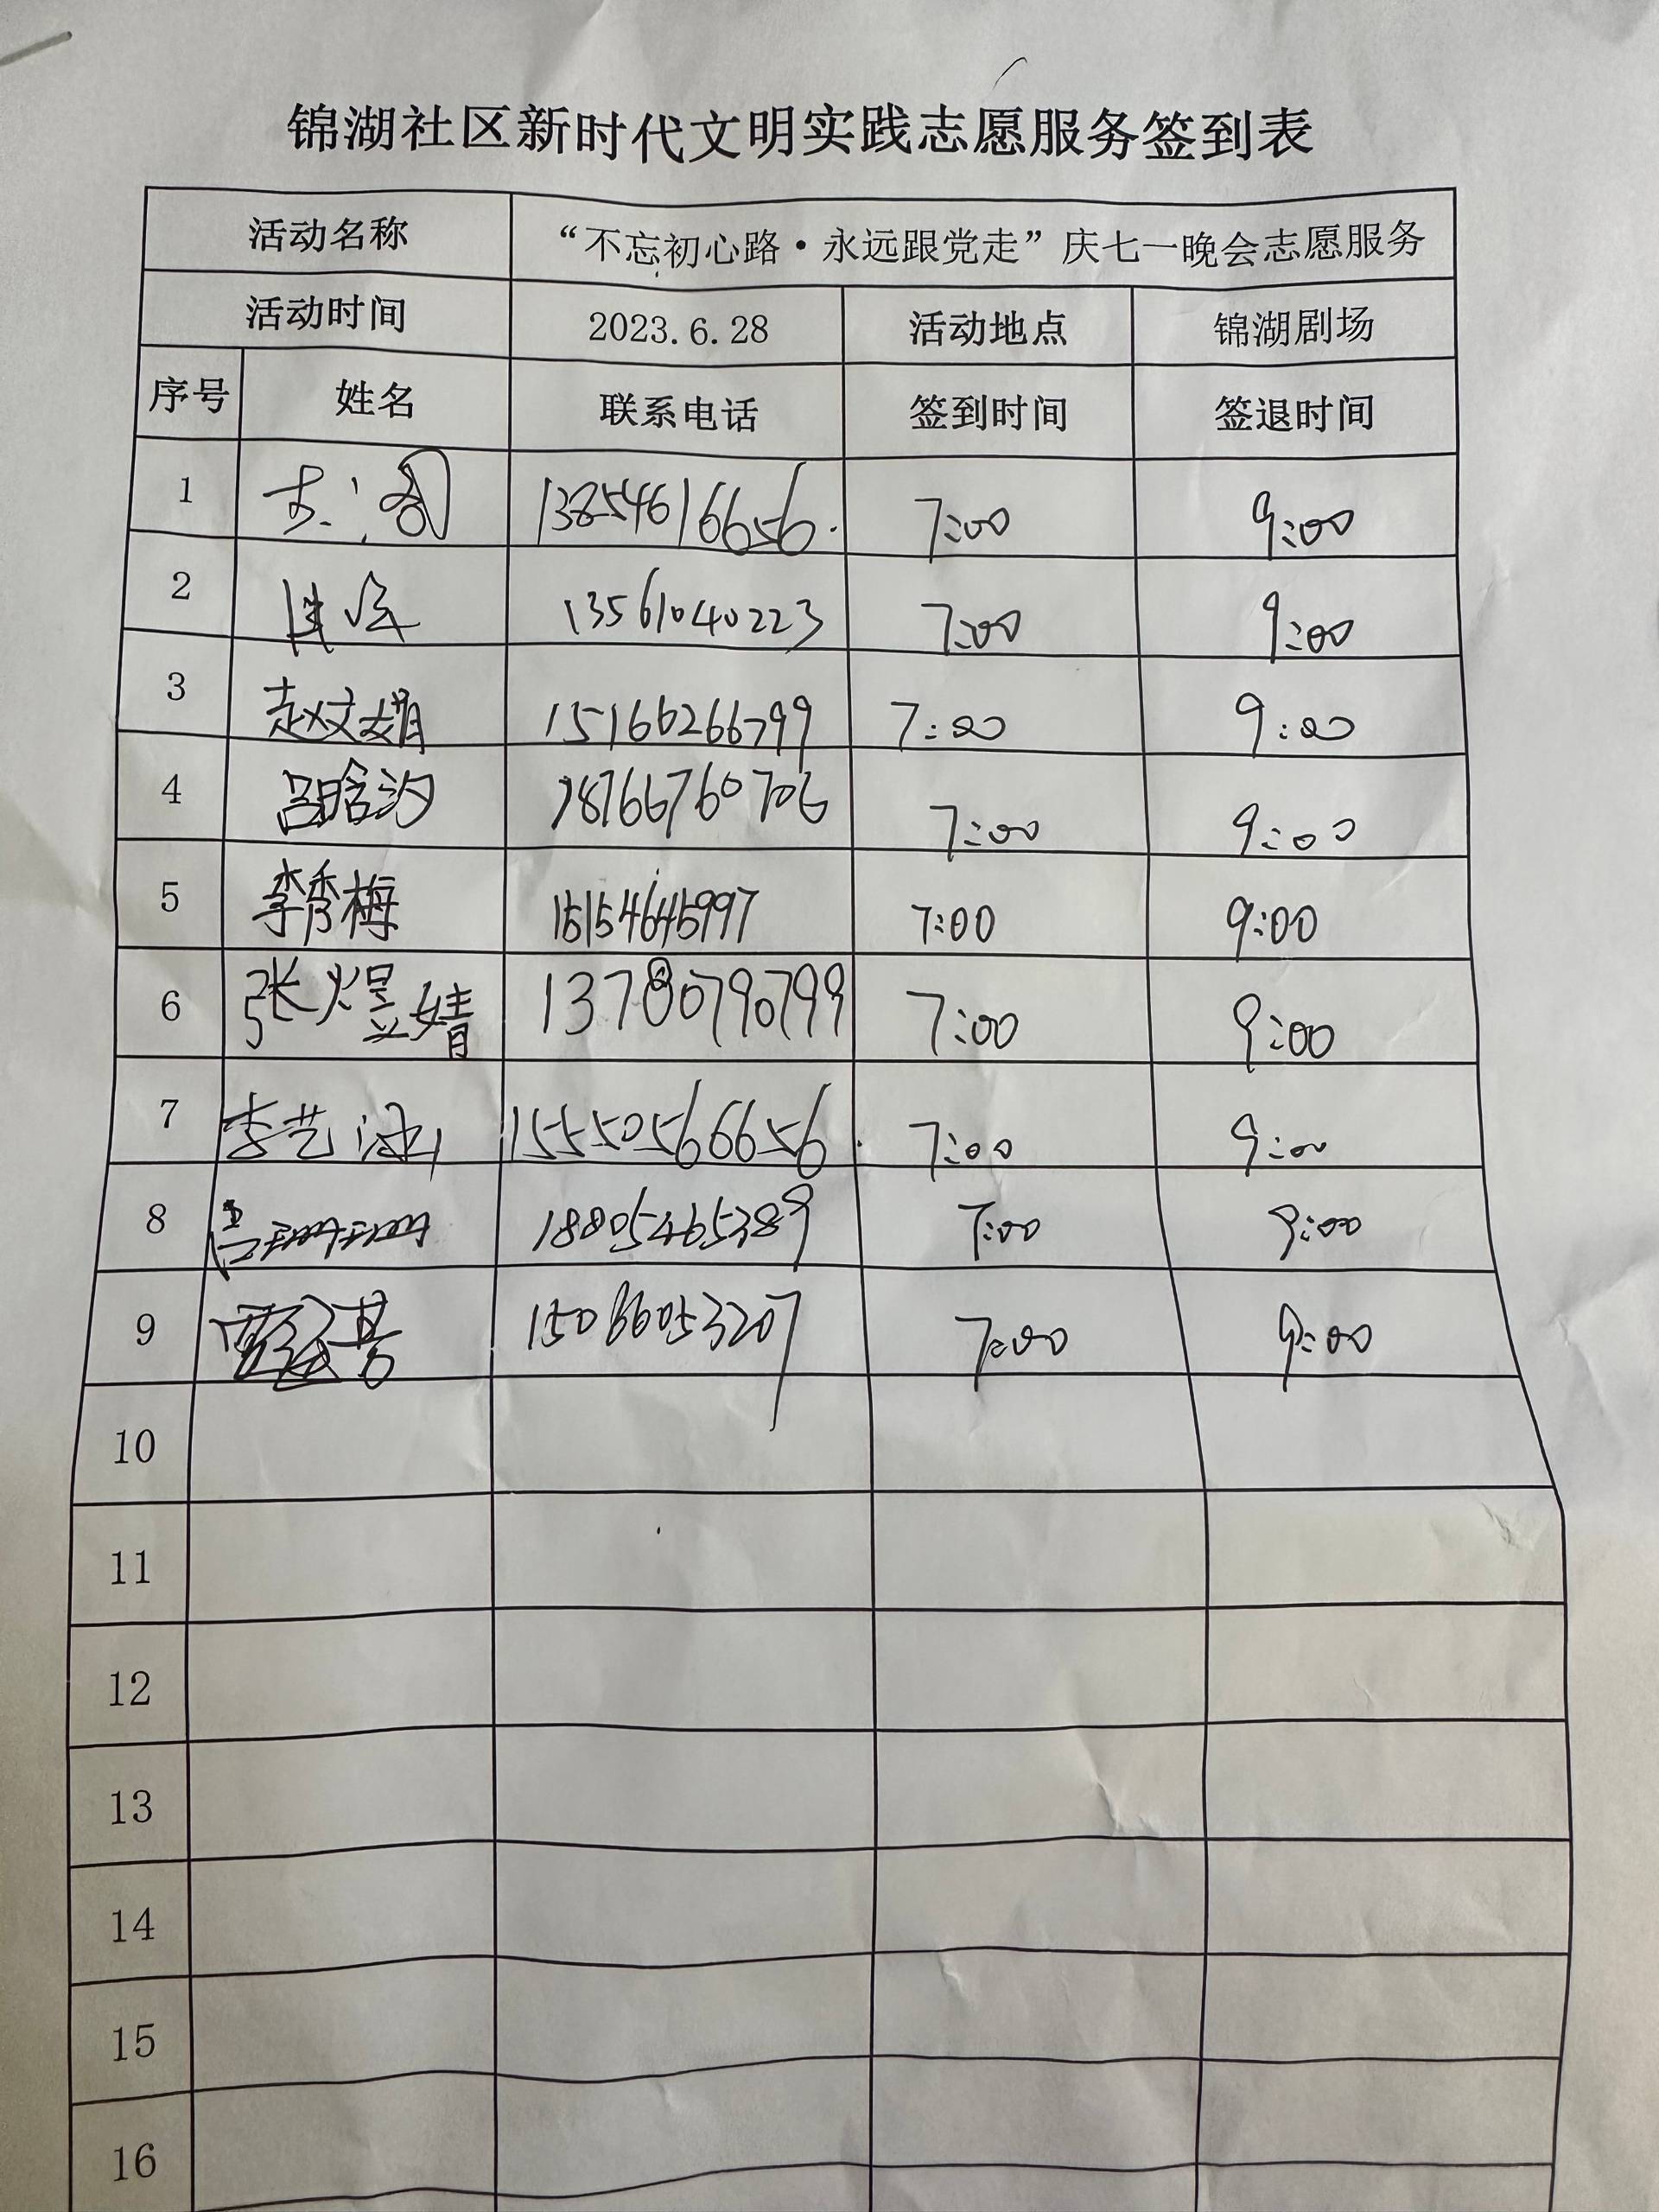 锦湖社区新时代文明实践志愿服务签到表
活动名称 “不忘初心路·永远跟党走”庆七一晚会志愿服务
活动时间 2023.6.28 活动地点 锦湖剧场
序号 姓名 联系电话 签到时间 签退时间
1 13854616656. 7:00 9:00
2 13561040223 7:00 9:00
3 赵文娟 15166266799 7:00 9:00
4 吕晗汐 18766760706 7:00 9:00
5 李秀梅 15154645997 7:00 9:00
6 张煜婧 13780790799 7:00 9:00
7 李艺 15550566656. 7:00 9:00
8 18805465389 7:00 9:00
9 15066053207 7:00 9:00
10
11
12
13
14
15
16